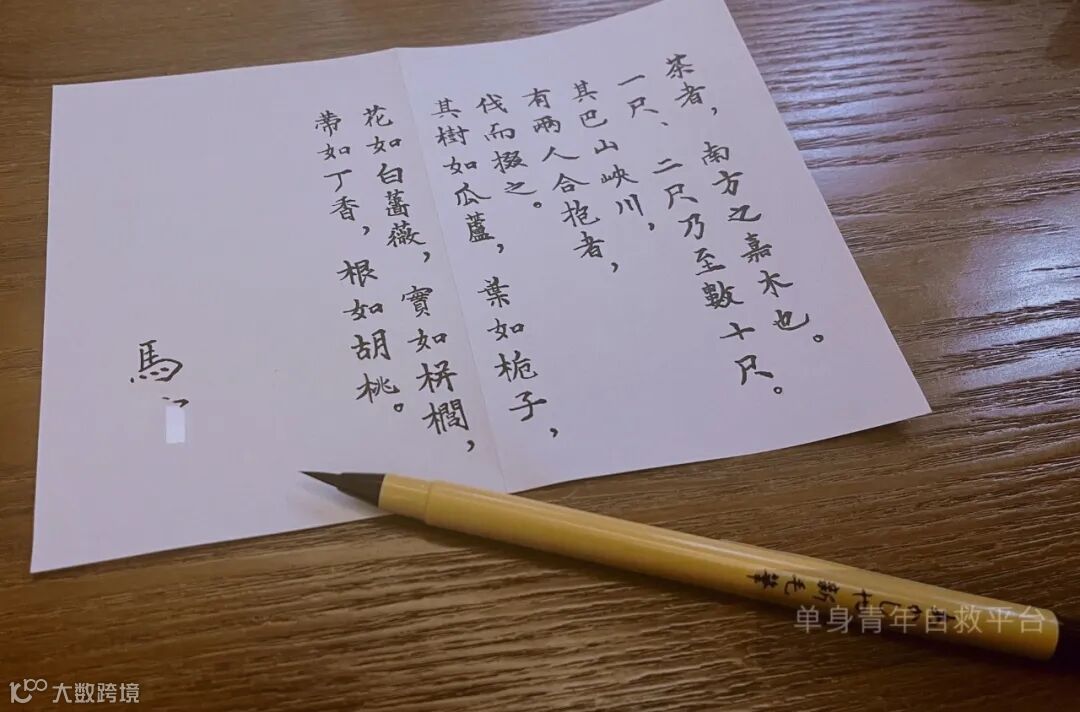 茶者，南方之嘉木也。
一尺、二尺乃至數十尺。
其巴山峽川，
有兩人合抱者，
伐而掇之。
其樹如瓜蘆，葉如梔子，
花如白薔薇，實如栟櫚，
蒂如丁香，根如胡桃。
馬
新毛筆
单身青年自救平台
大数跨境